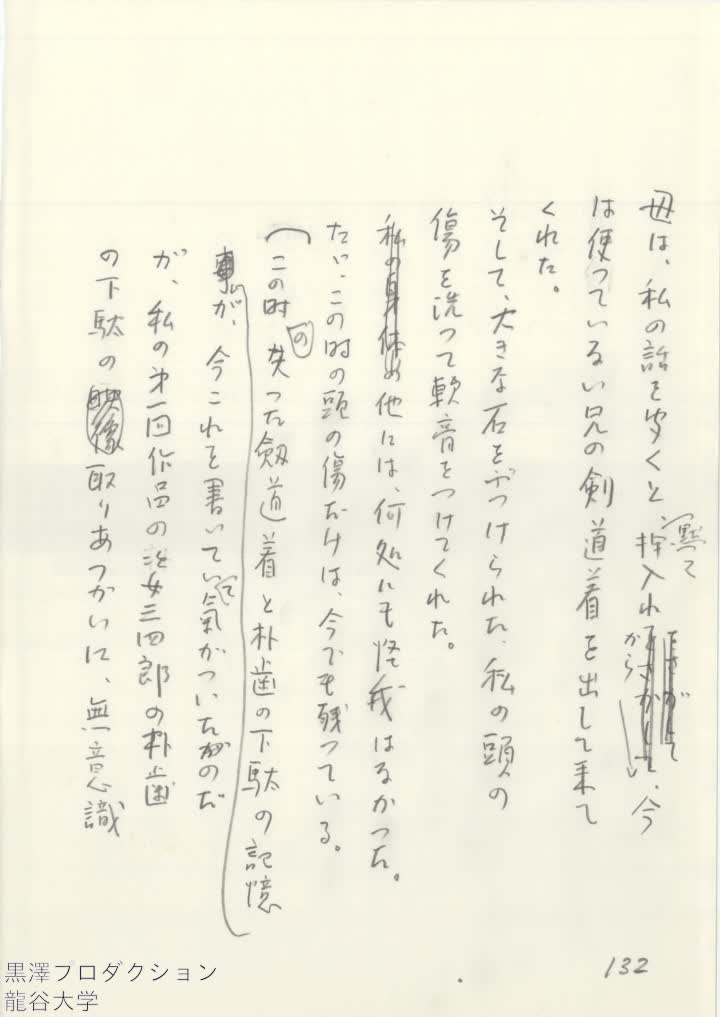 母は、私の話を聞くと、黙って押入れから、今
は使っていない兄の剣道着を出して来て
くれた。
そして、大きな石をぶつけられた、私の頭の
傷を洗って軟膏をつけてくれた。
私の身体の他には、何処にも怪我はなかった。
たゞ、この時の頭の傷だけは、今でも残っている。
(この時の失った剱道着と朴歯の下駄の記憶
事が、今これを書いていて氣がついたのだ
が、私の第一回作品の姿三四郎の朴歯
の下駄の映像取りあつかいに、無意識
132
黒澤プロダクション
龍谷大学